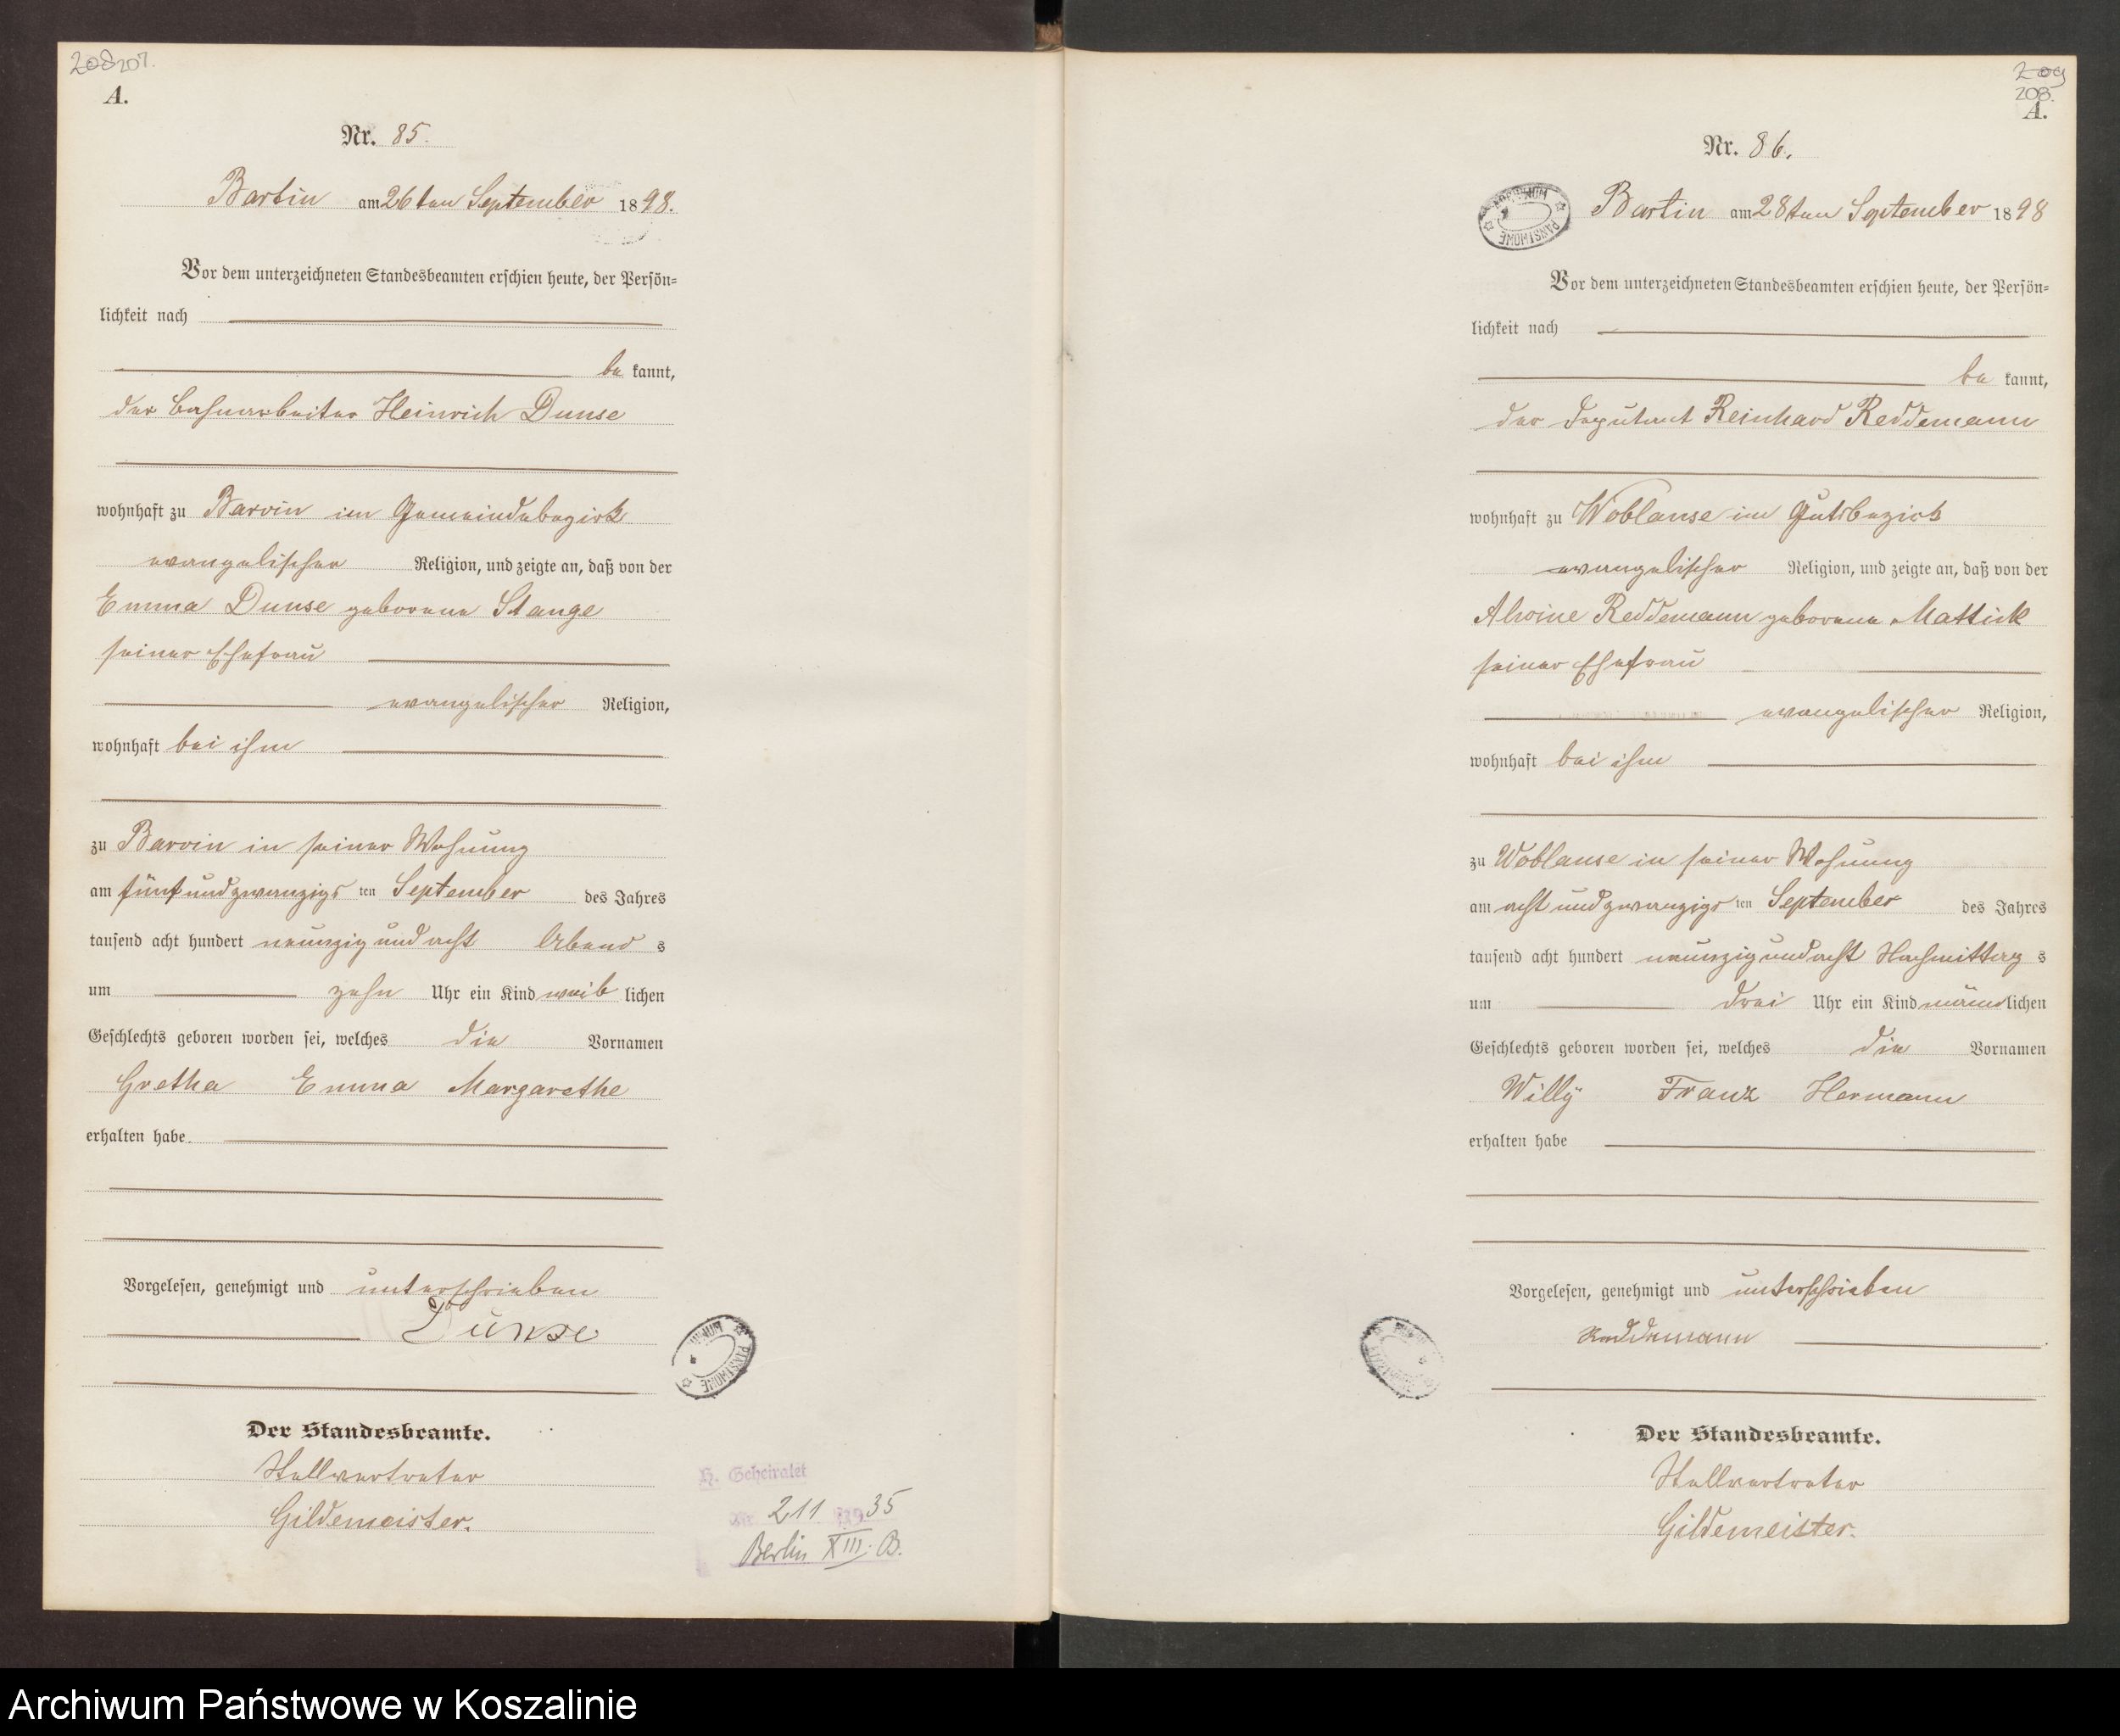 208 207.
A.
Nr. 85.
Bartin am 26ten September 1898.
Vor dem unterzeichneten Standesbeamten erschien heute, der Persön=
lichkeit nach
be kannt,
der Bahnarbeiter Heinrich Dunse
wohnhaft zu Barvin im Gemeindebezirk
evangelischer Religion, und zeigte an, daß von der
Emma Dunse geborene Stange
seiner Ehefrau
evangelischer Religion,
wohnhaft bei ihm
zu Barvin in seiner Wohnung
am fünfundzwanzigs ten September des Jahres
tausend acht hundert neunzig und acht Abend s
um zehn Uhr ein Kind weib lichen
Geschlechts geboren worden sei, welches die Vornamen
Gretha Emma Margarethe
erhalten habe.
Vorgelesen, genehmigt und unterschrieben
Dunse
Der Standesbeamte.
Stellvertreter
Gildemeister.
ARCHIWUM PAŃSTWOWE
H. Geheiratet
Nr. 211 1935
Berlin XIII. B.
209
208.
A.
Nr. 86.
ARCHIWUM PAŃSTWOWE
Bartin am 28ten September 1898
Vor dem unterzeichneten Standesbeamten erschien heute, der Persön=
lichkeit nach
be kannt,
der Deputant Reinhard Reddemann
wohnhaft zu Woblanse im Gutsbezirk
evangelischer Religion, und zeigte an, daß von der
Alwine Reddemann geborene Mattick
seiner Ehefrau
evangelischer Religion,
wohnhaft bei ihm
zu Woblanse in seiner Wohnung
am acht und zwanzigs ten September des Jahres
tausend acht hundert neunzig und acht Nachmittag s
um drei Uhr ein Kind männ lichen
Geschlechts geboren worden sei, welches die Vornamen
Willÿ Franz Hermann
erhalten habe
Vorgelesen, genehmigt und unterschrieben
Reddemann
Der Standesbeamte.
Stellvertreter
Gildemeister.
Archiwum Państwowe w Koszalinie